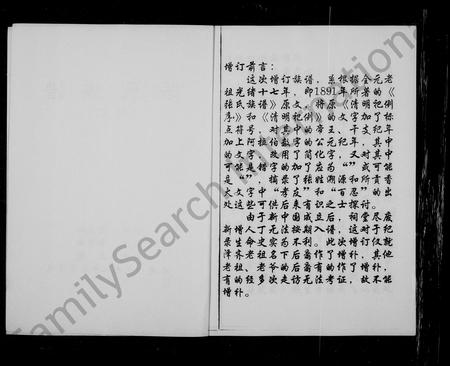 增订前言：
这次增订族谱，系根据全元老
祖光绪十七年，即1891年所著的《
张氏族谱》原文，将原《清明祀例
序》和《清明祀例》的文字加了标
点符号，对其中的帝王、干支纪年
加上阿拉伯数字的公元纪年，其中
的文字，改用了简化字，又对其中
可能是错字的加了应为“”或可能
是“”，摘录了张姓溯源和所贵香
太文字中“孝友”和“百忍”的出
处这些可供后来有识之士探讨。
由于新中国成立后，祠堂尽废
新增人丁无法按期入谱，这对于纪
录生命史实为不利。此次增订仅就
泽齐老祖名下后裔作了增补，其他
老祖、老爷的后裔有的作了增补，
有的经多次走访无法考证，故不能
增补。
FamilySearch International